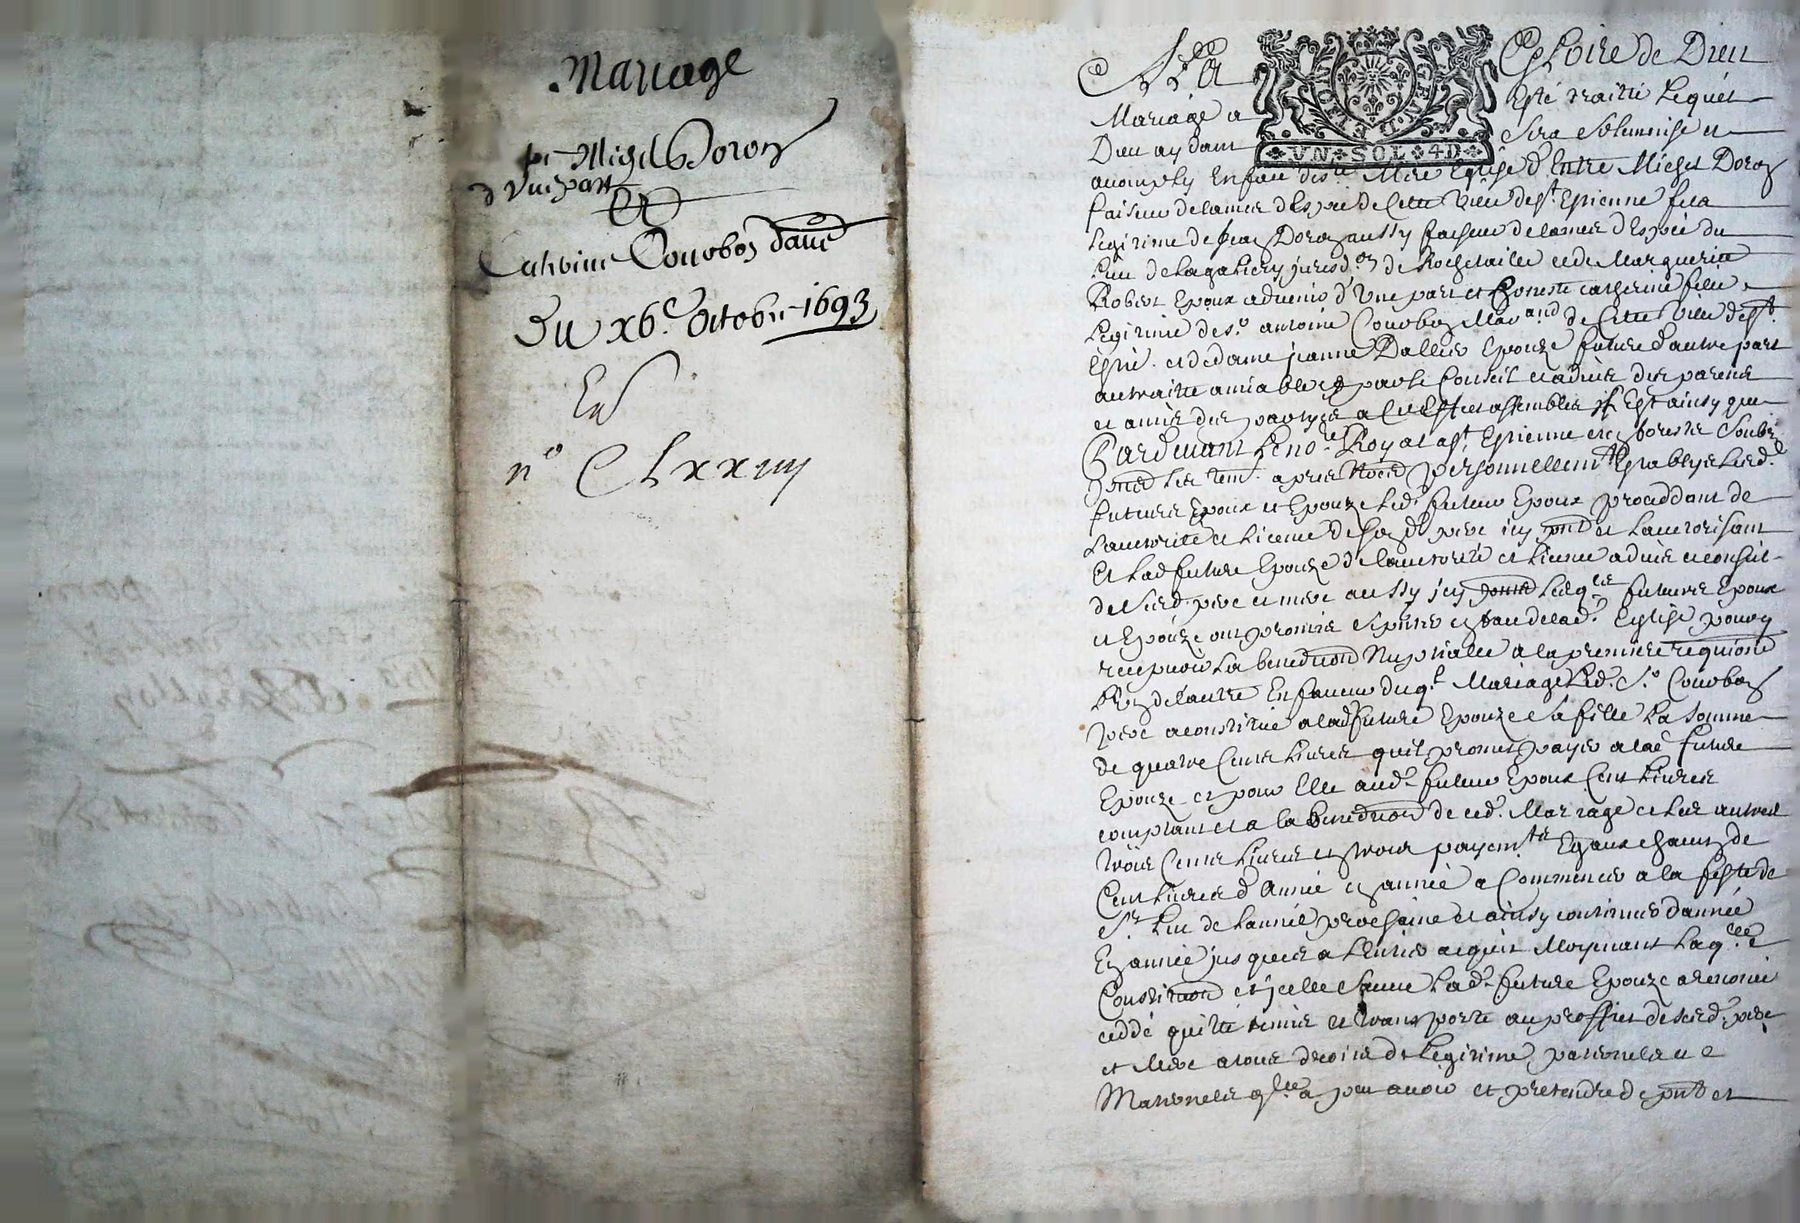 Mariage
de Michel Doron
d'vne part
Et
Catherine Courbon d'autre
Du x6.e Octobre 1693
n.o CLxxiiij
A La Gloire de Dieu
Mariage a Esté traitté Lequel
Dieu aydant Sera Solemnise
GEN.D.LYON
VN SOL 4D
Mere Eglise d'Entre Michel Doron
faiseur de lames d'Espée de Cette Ville de St. Estienne fils
Legitime de Jean Doron aussy faiseur de lames d'Espée du
Lieu de de Rochetaillee et de Marguerite
Robert Epoux aduenir d'Vne part et honeste catherine fille
Legitime de Sr. antoine Courbon Marand de Cette Ville de St.
Estie. et de dame jeanne Dallier Epouze future d'autre part
au traitté amiable par le Conseil et aduis des parens
et amis des partyes a Cet Effet assembles Est ainsy que
Pardeuant Le nore. Royal a St. Estienne en forestz Soubzné
apres Només personnellemt. Establys Lesd.
futurs Epoux et Epouze Led. futur Epoux proceddant de
Lauthorité et Licence de son d. pere icy pnt et Lauthorisant
Et Lad. future Epouze de lauthorité et Licence aduis et conseil
de Sesd. pere et mere aussy icy pnts Lesqls. futurs Epoux
et Epouze ont promis Se pnter en face de lad. Eglise pour y
recepuoir La benediction Nuptialle a la premiere requions
L'Vn de lautre En faueur duql. Mariage Led. Sr. Courbon
pere a constitué a lad. future Epouze Sa fille La Somme
de quatre Cents Liures quil promet payer a lad future
Epouze et pour Elle aud. futur Epoux Cent Liures
comptant et a la benediction de ced. Mariage et les autres
trois Cents Liures en trois payemts. Egaux chacun de
Cent Liures d'Année en année a Commencer a la feste de
St. Luc de Lannée prochaine et ainsy continuer d'année
En année jusques a L'entier acquit Moyenant Laqlle.
Constitution et icelle Sauue Lad. future Epouze a renoncé
ceddé quitté remis et transporté au proffict de sesd. pere
et Mere a tous droits de Legitime paternels et
Maternels qlle. a peu auoir et pretendre de pnt et